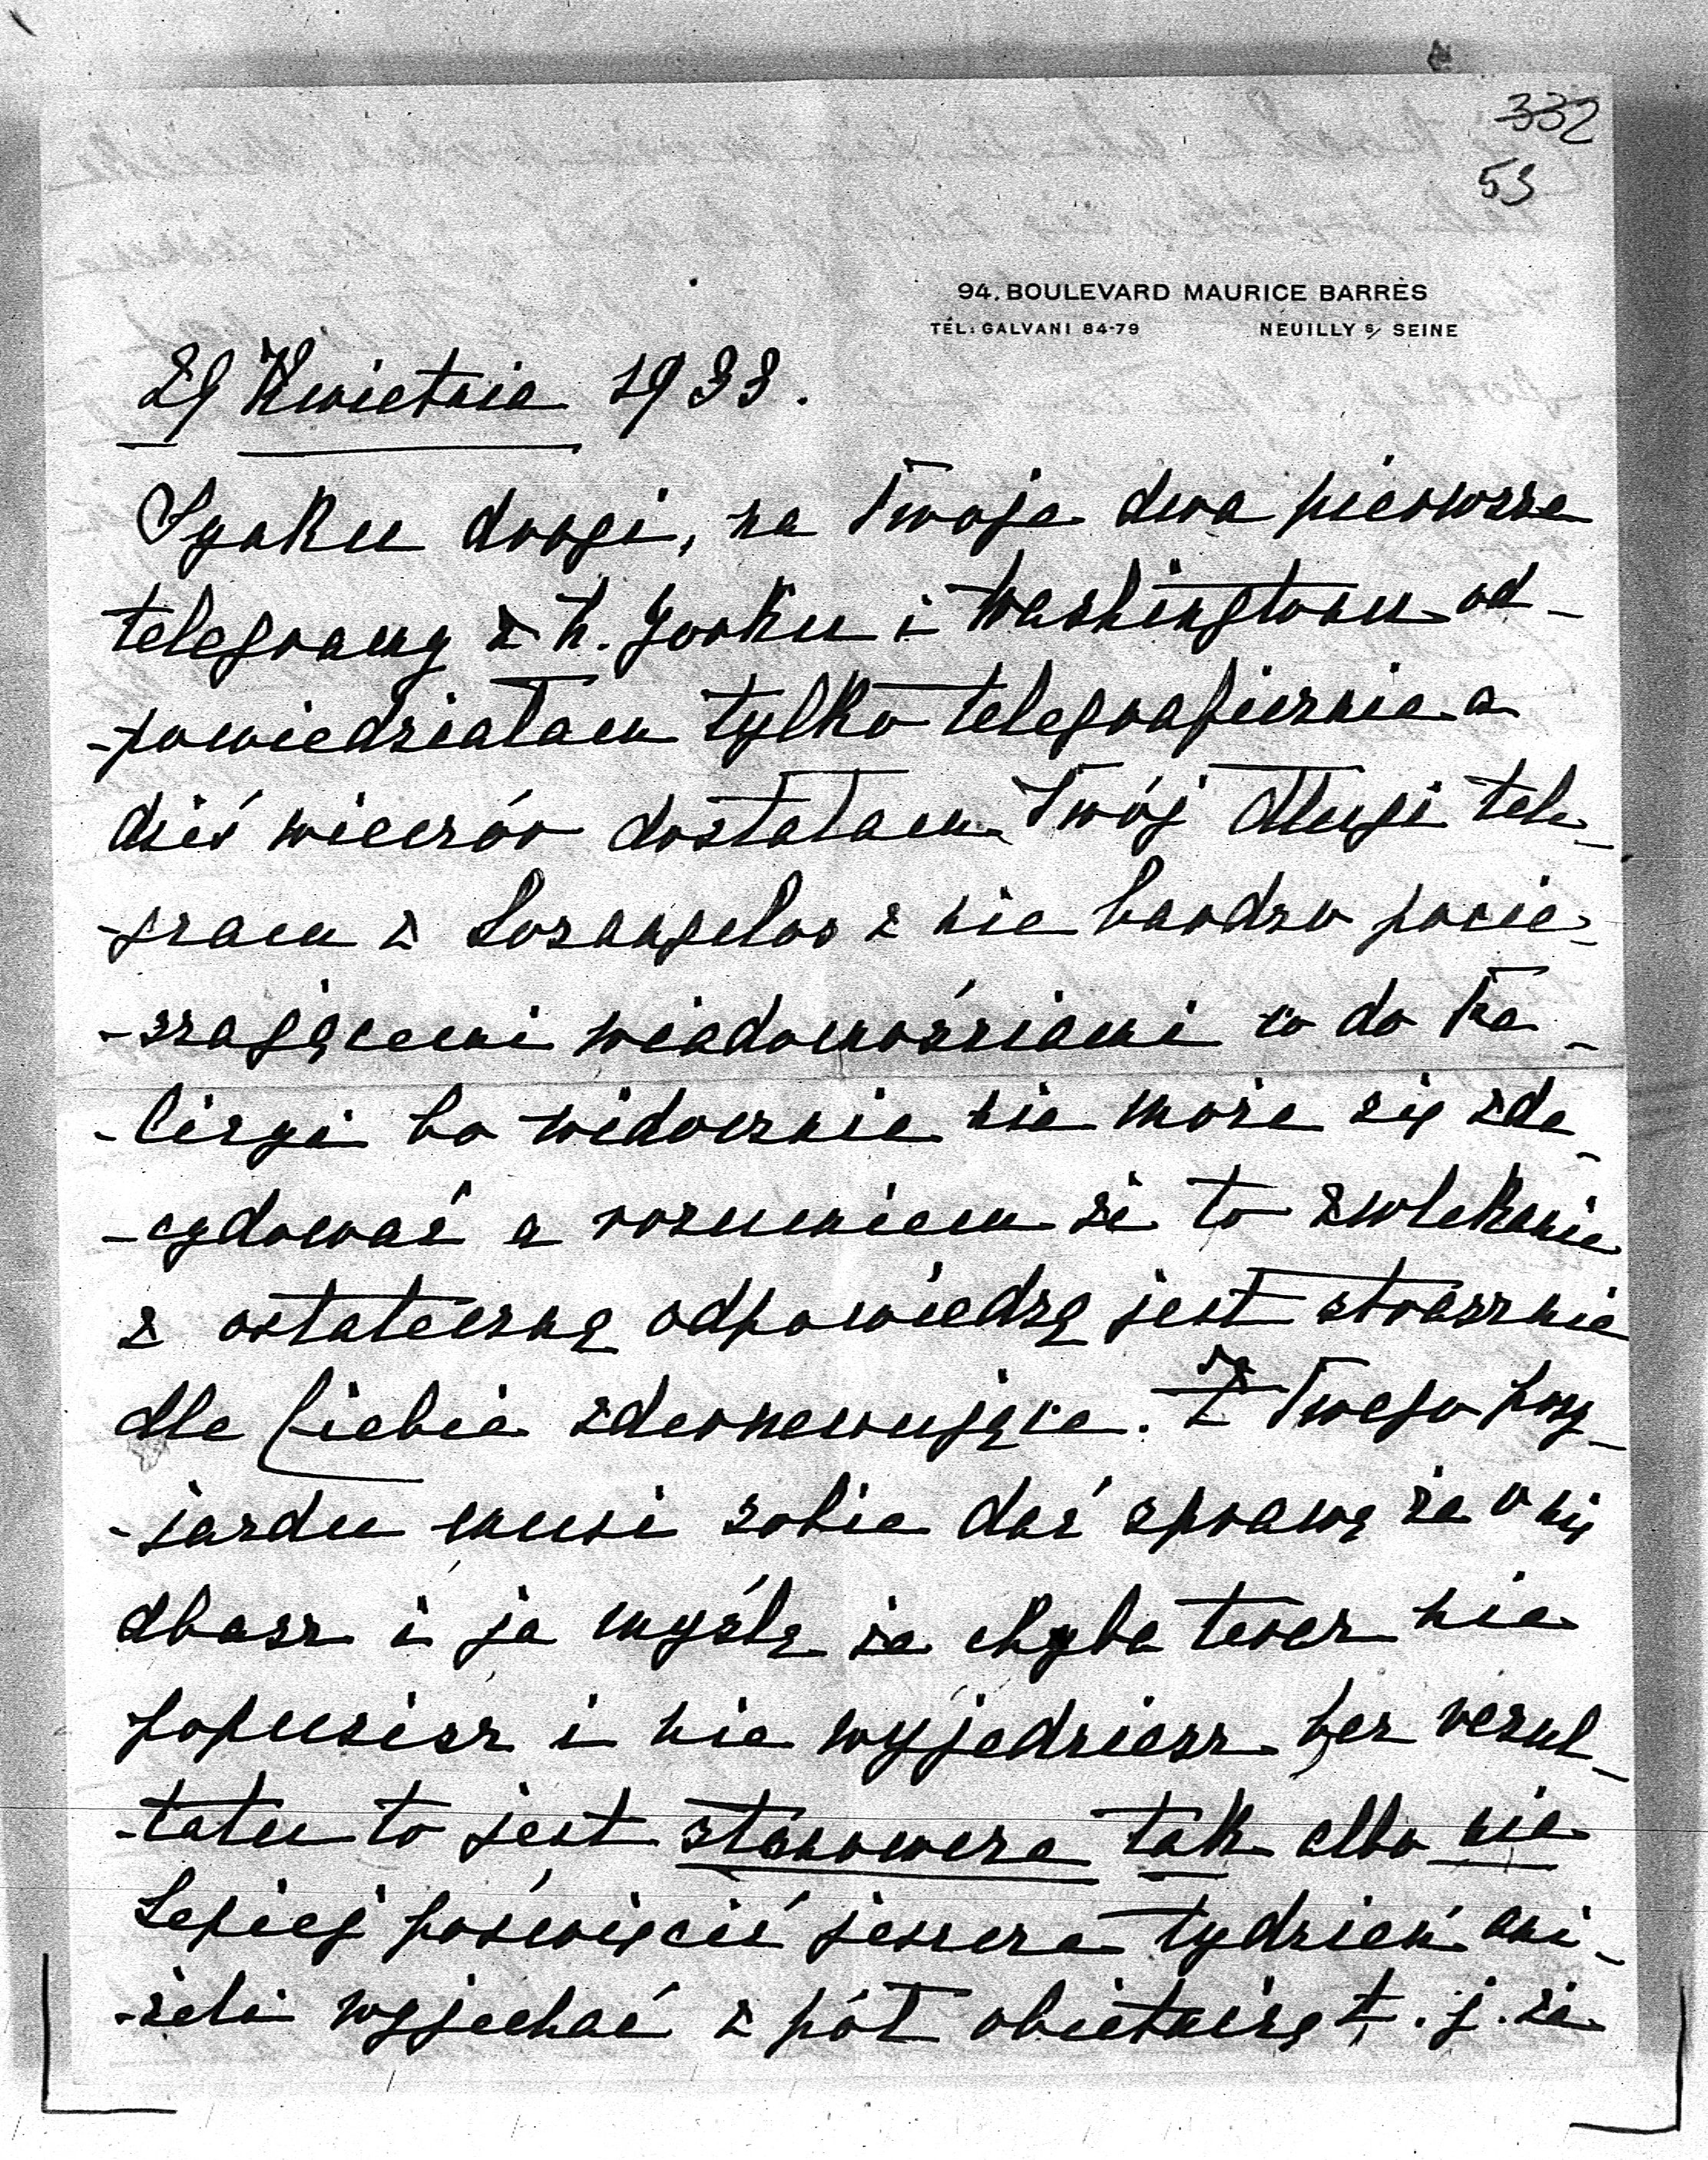 332
53
94. BOULEVARD MAURICE BARRÈS
TÉL: GALVANI 84-79 NEUILLY S/ SEINE
29 Kwietnia 1933.
Synku drogi, na Twoje dwa pierwsze
telegramy z N. Yorku i Washingtonu od-
-powiedziałam tylko telegraficznie a
dziś wieczór dostałam Twój długi tele-
-gram z Losangelos z nie bardzo pocie-
-szającemi wiadomościami co do Ka-
-lizyi bo widocznie nie może się zde-
-cydować a rozumiem że to zwlekanie
z ostateczną odpowiedzą jest strasznie
dla Ciebie zdenerwujące. Z Twego przy-
-jazdu musi sobie dać sprawę że o nię
dbasz i ja myślę że chyba teraz nie
popuścisz i nie wyjedziesz bez rezul-
-tatu to jest stanowcze tak albo nie
Lepiej poświęcić jeszcze tydzień ani-
-żeli wyjechać z pół obietnicą t. j. że